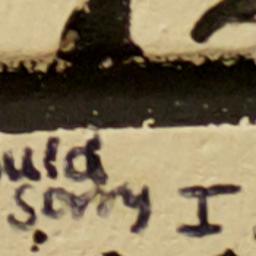 ould
sorry I